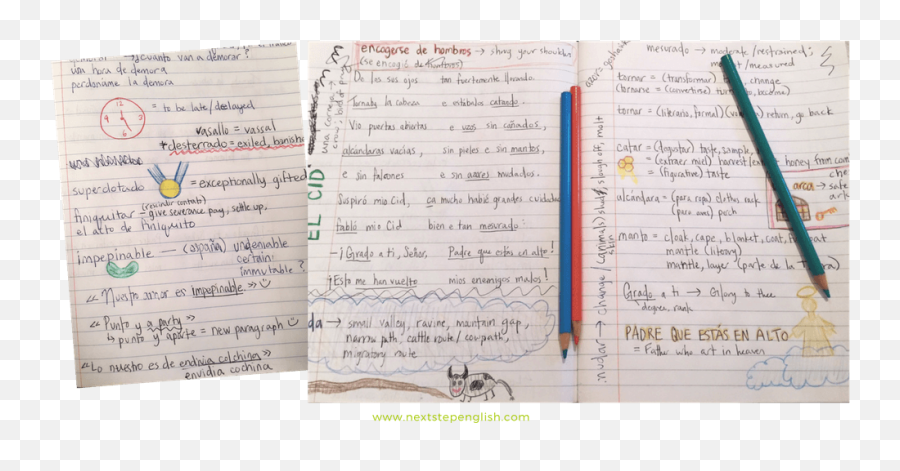 ¿cuánto van a demorar?
una hora de demora
perdóname la demora
12
9 3
6
= to be late/delayed
vasallo = vassal
desterrado = exiled, banished
superdotado = exceptionally gifted
finiquitar = give severance pay, settle up,
el acto de finiquito
impepinable — (España) undeniable
certain
immutable?
"Nuestro amor es impepinable."
"Punto y a party"
punto y aparte = new paragraph
"Lo nuestro es de endivia colching"
envidia cochina
EL CID
encogerse de hombros → shrug your shoulders
(se encogió de hombros)
De los sus ojos tan fuertemente llorando.
Tornaba la cabeza e estábalos catando.
Vio puertas abiertas e uços sin cañados,
alcándaras vacías, sin pieles e sin mantos,
e sin falcones e sin adtores mudados.
Suspiró mio Cid, ca mucho habié grandes cuidados
fabló mio Cid bien e tan mesurado:
—¡Grado a ti, Señor, Padre que estás en alto!
¡Esto me han vuelto mios enemigos malos!
→ small valley, ravine, mountain gap,
narrow path, cattle route/cowpath,
migratory route
mudar → change / (animals) shed / slough off, molt
skin
mesurado → moderate/restrained;
/measured
tornar = (transformar) change
(tornarse = (convertirse) turn, become)
tornar = (literario, formal) return, go back
catar = (degustar) taste, sample,
= (extraer miel) harvest honey from
= (figurative) taste
arca → safe
alcándara = (para ropa) clothes rack
(para aves) perch
manto = cloak, cape, blanket, coat,
mantle (literary)
mantle, layer (parte de la Tierra)
Grado a ti → Glory to thee
degree, rank
PADRE QUE ESTÁS EN ALTO
= Father who art in heaven
www.nextstepenglish.com